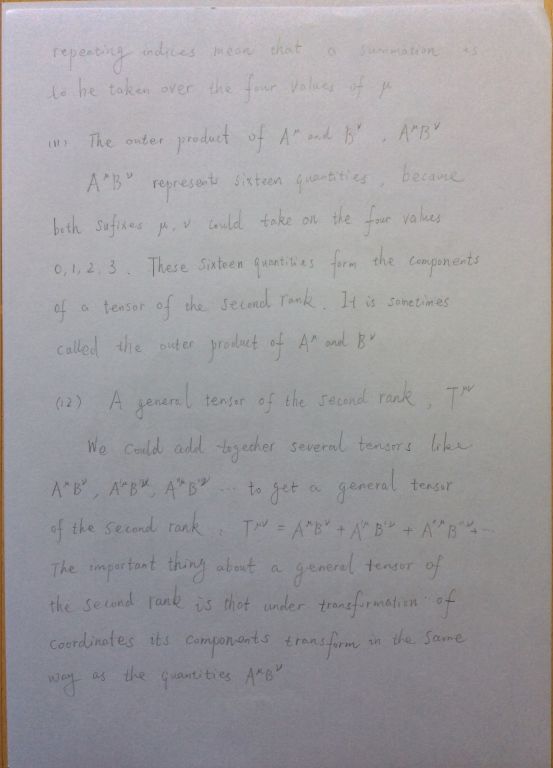 repeating indices mean that a summation is
to be taken over the four values of μ
(11) The outer product of A^μ and B^ν, A^μB^ν
A^μB^ν represents sixteen quantities, because
both sufixes μ, ν could take on the four values
0, 1, 2, 3. These sixteen quantities form the components
of a tensor of the second rank. It is sometimes
called the outer product of A^μ and B^ν
(12) A general tensor of the second rank, T^μν
We could add together several tensors like
A^μB^ν, A'^μB'^ν, A''^μB''^ν ... to get a general tensor
of the second rank, T^μν = A^μB^ν + A'^μB'^ν + A''^μB''^ν + ...
The important thing about a general tensor of
the second rank is that under transformation of
coordinates its components transform in the same
way as the quantities A^μB^ν